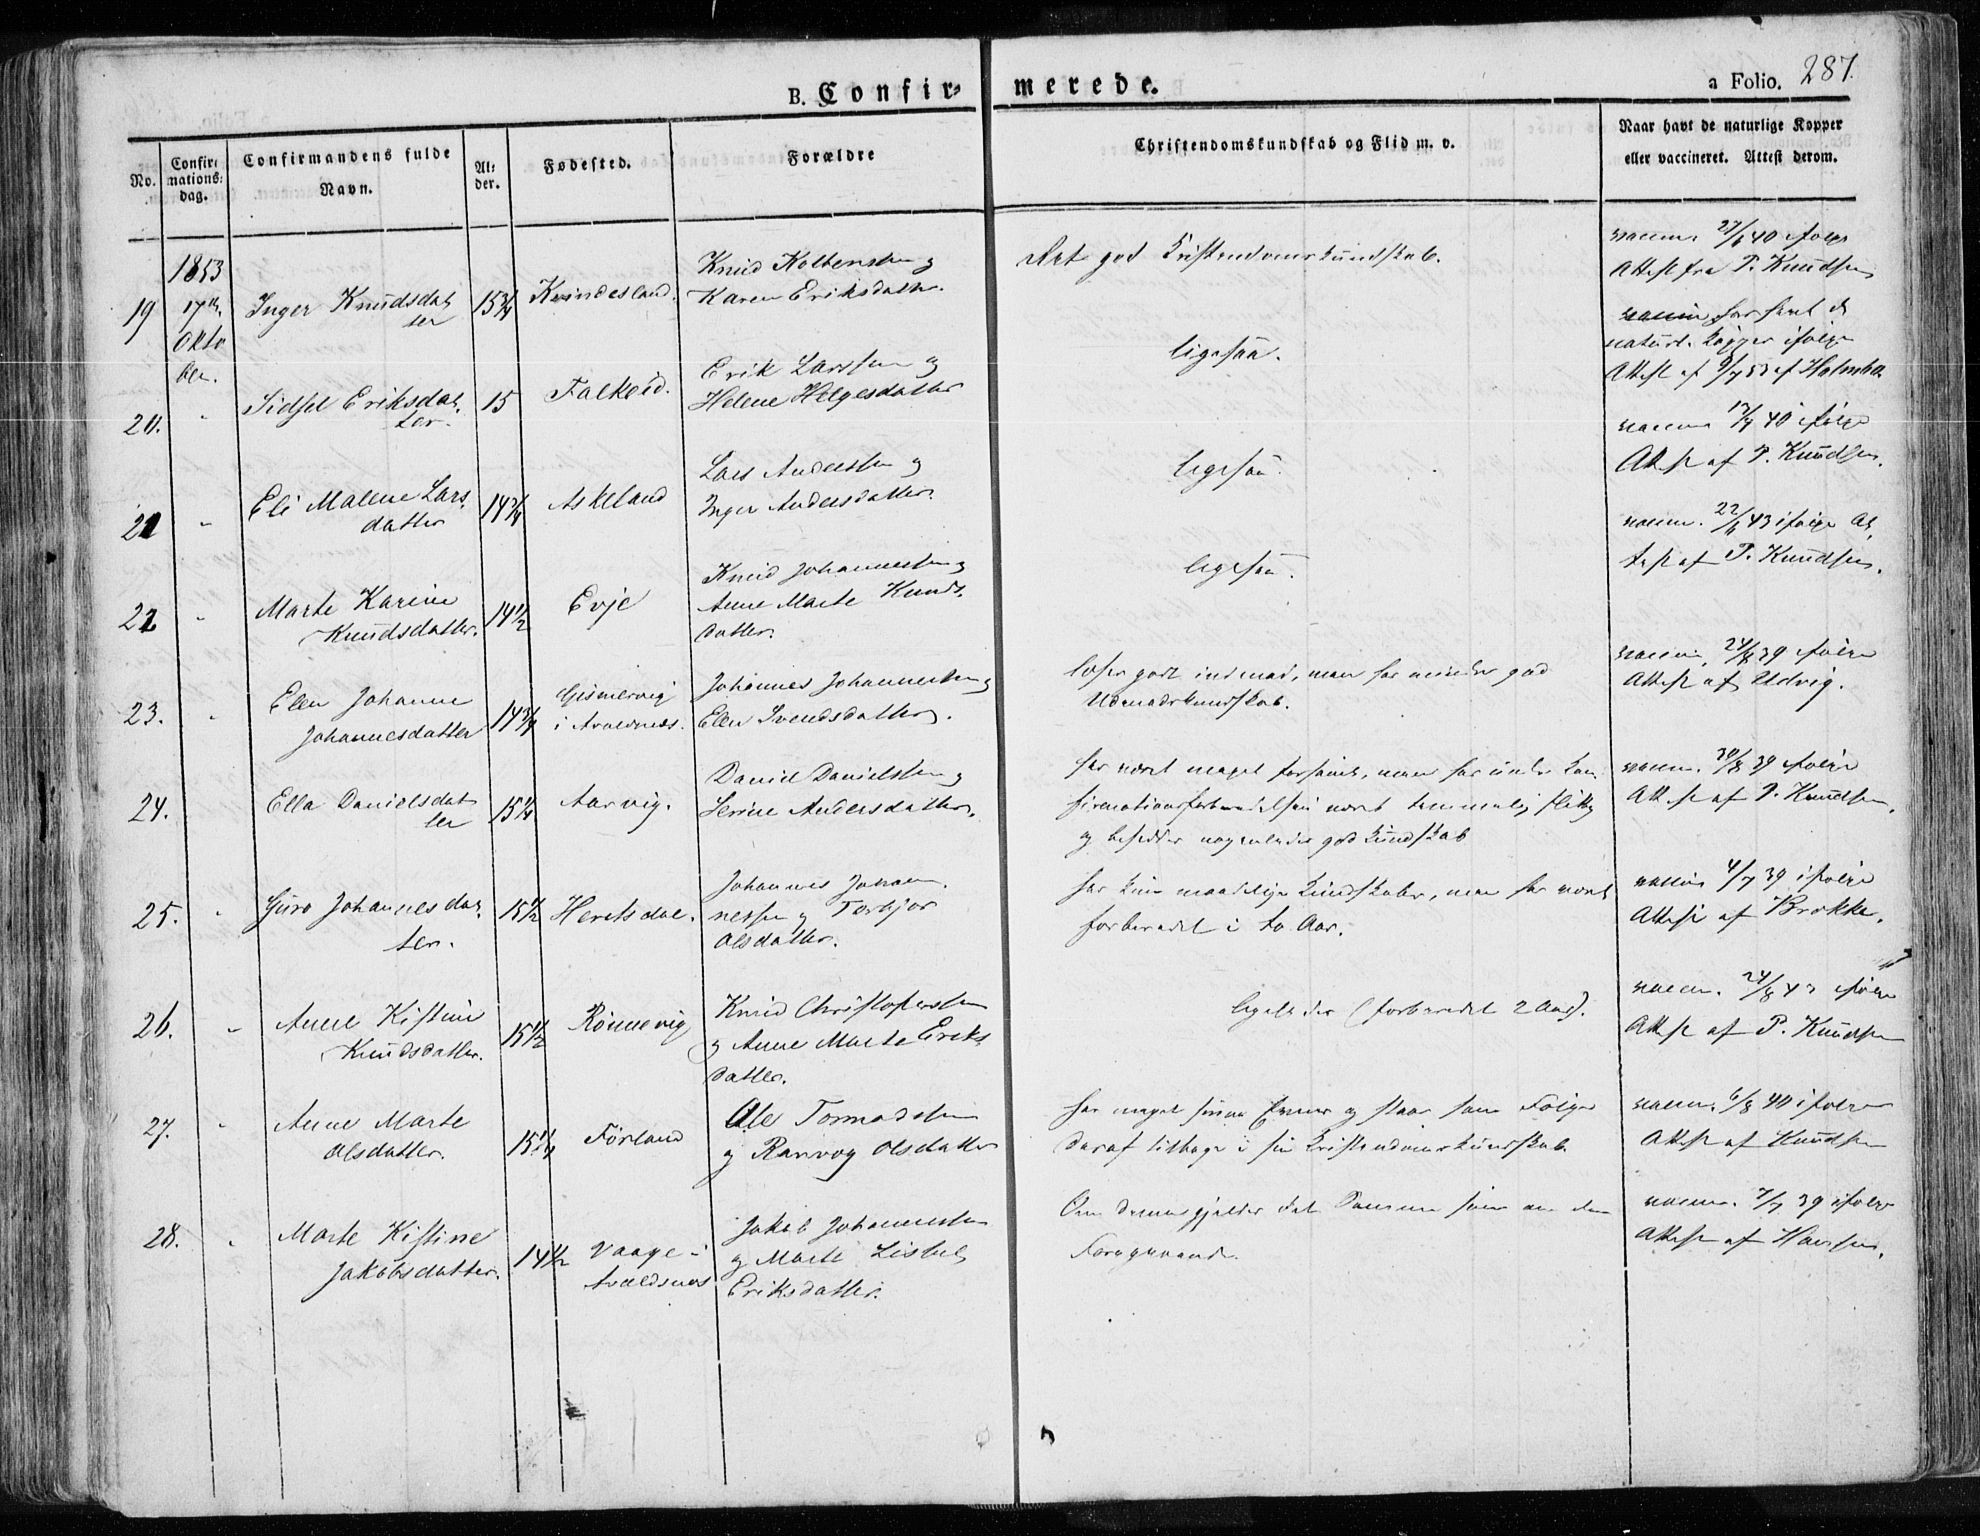 B. Confir- merede.
a Folio. 287.
No.
Confir-
mations-
dag.
Confirmandens fulde
Navn.
Al-
der.
Fødested.
Forældre
Christendomskundskab og Flid m. v.
Naar havt de naturlige Kopper
eller vaccineret. Attest derom.
1853
17de
Okto
ber.
19 Inger Knudsdat
ter
15 3/4
Kvindesland.
Knud Kolbensen og
Karen Eriksdatter.
god Kristendomskundskab.
vaccin. 27/6 40 ifølge
Attest fra P. Knudsen
20. " Sidsel Eriksdat
ter.
15
Falkeid.
Erik Larssen og
Helene Helgesdatter
ligesaa.
vaccin har havt de
naturl. Kopper ifølge
Attest af 9/7 53 af
21 " Eli Malene Lars
datter
14 3/4
Askeland
Lars Anderssen og
Inger Andersdatter.
ligesaa.
vaccin. 13/7 40 ifølge
Attest af P. Knudsen.
22 " Marte Karine
Knudsdatter.
14 1/2
Evje
Knud Johannessen og
Anne Marte Knuds
datter.
ligesaa.
vaccin. 22/6 43 ifølge At
test af P. Knudsen.
23. " Ellen Johanne
Johannesdatter
14 3/4
Gismervig
i Avaldsnes.
Johannes Johannessen og
Ellen Svendsdatter.
læser godt indenad, men har mindre god
Udenadskundskab.
vaccin. 24/8 39 ifølge
Attest af Udvig.
24. Ella Danielsdat
ter
15 1/4
Aarvig.
Daniel Danielssen og
Serine Andersdatter.
har været meget forsømt, men har under Kon
firmationsforberedelsen været temmelig flittig
og besidder nogenledes god Kundskab
vaccin. 30/8 39 ifølge
Attest af P. Knudsen.
25. " Guro Johannesdat
ter.
15 1/2
Heretsdal.
Johannes Johan
nessen og Torbjør
Olsdatter.
har kun maadelige Kundskaber, men har været
forberedet i to Aar.
vaccin 4/7 39 ifølge
Attest af Brokke.
26. " Anne Kistine
Knudsdatter.
15 1/2
Rønnevig
Knud Christofersen
og Anne Marte Eriks
datter.
ligeledes (forberedet 2 Aar).
vaccin. 24/8 43 ifølge
Attest af P. Knudsen
27. " Anne Marte
Olsdatter.
15 1/4
Førland
Ole Tormodsen
og Ranvog Olsdatter
har meget svage Evner og staar som Følge
deraf tilbage i sin Kristendomskundskab.
vaccin. 6/8 40 ifølge
Attest af Knudsen
28. " Marte Kistine
Jakobsdatter.
14 1/2
Vaage i
Avaldsnes
Jakob Johannessen
og Marte Lisbet
Eriksdatter.
Om denne gjelder det Samme som om den
Foregaaende.
vaccin. 7/7 39 ifølge
Attest af Hansen.